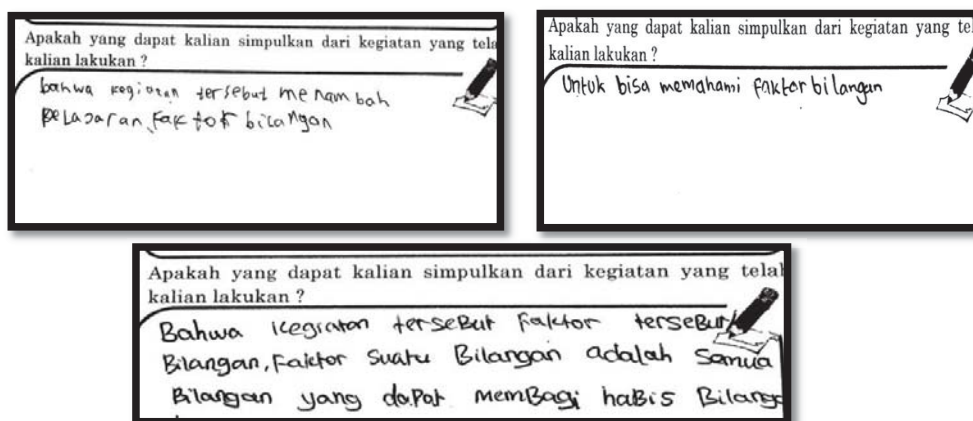 Apakah yang dapat kalian simpulkan dari kegiatan yang tela
kalian lakukan ?
bahwa kegiatan tersebut menambah
pelajaran faktor bilangan
Apakah yang dapat kalian simpulkan dari kegiatan yang te
kalian lakukan ?
Untuk bisa memahami faktor bilangan
Apakah yang dapat kalian simpulkan dari kegiatan yang tela
kalian lakukan ?
Bahwa kegiatan terseBut Faktor terseBut
Bilangan, Faktor suatu Bilangan adalah samua
Bilangan yang daPat memBagi haBis Bilang